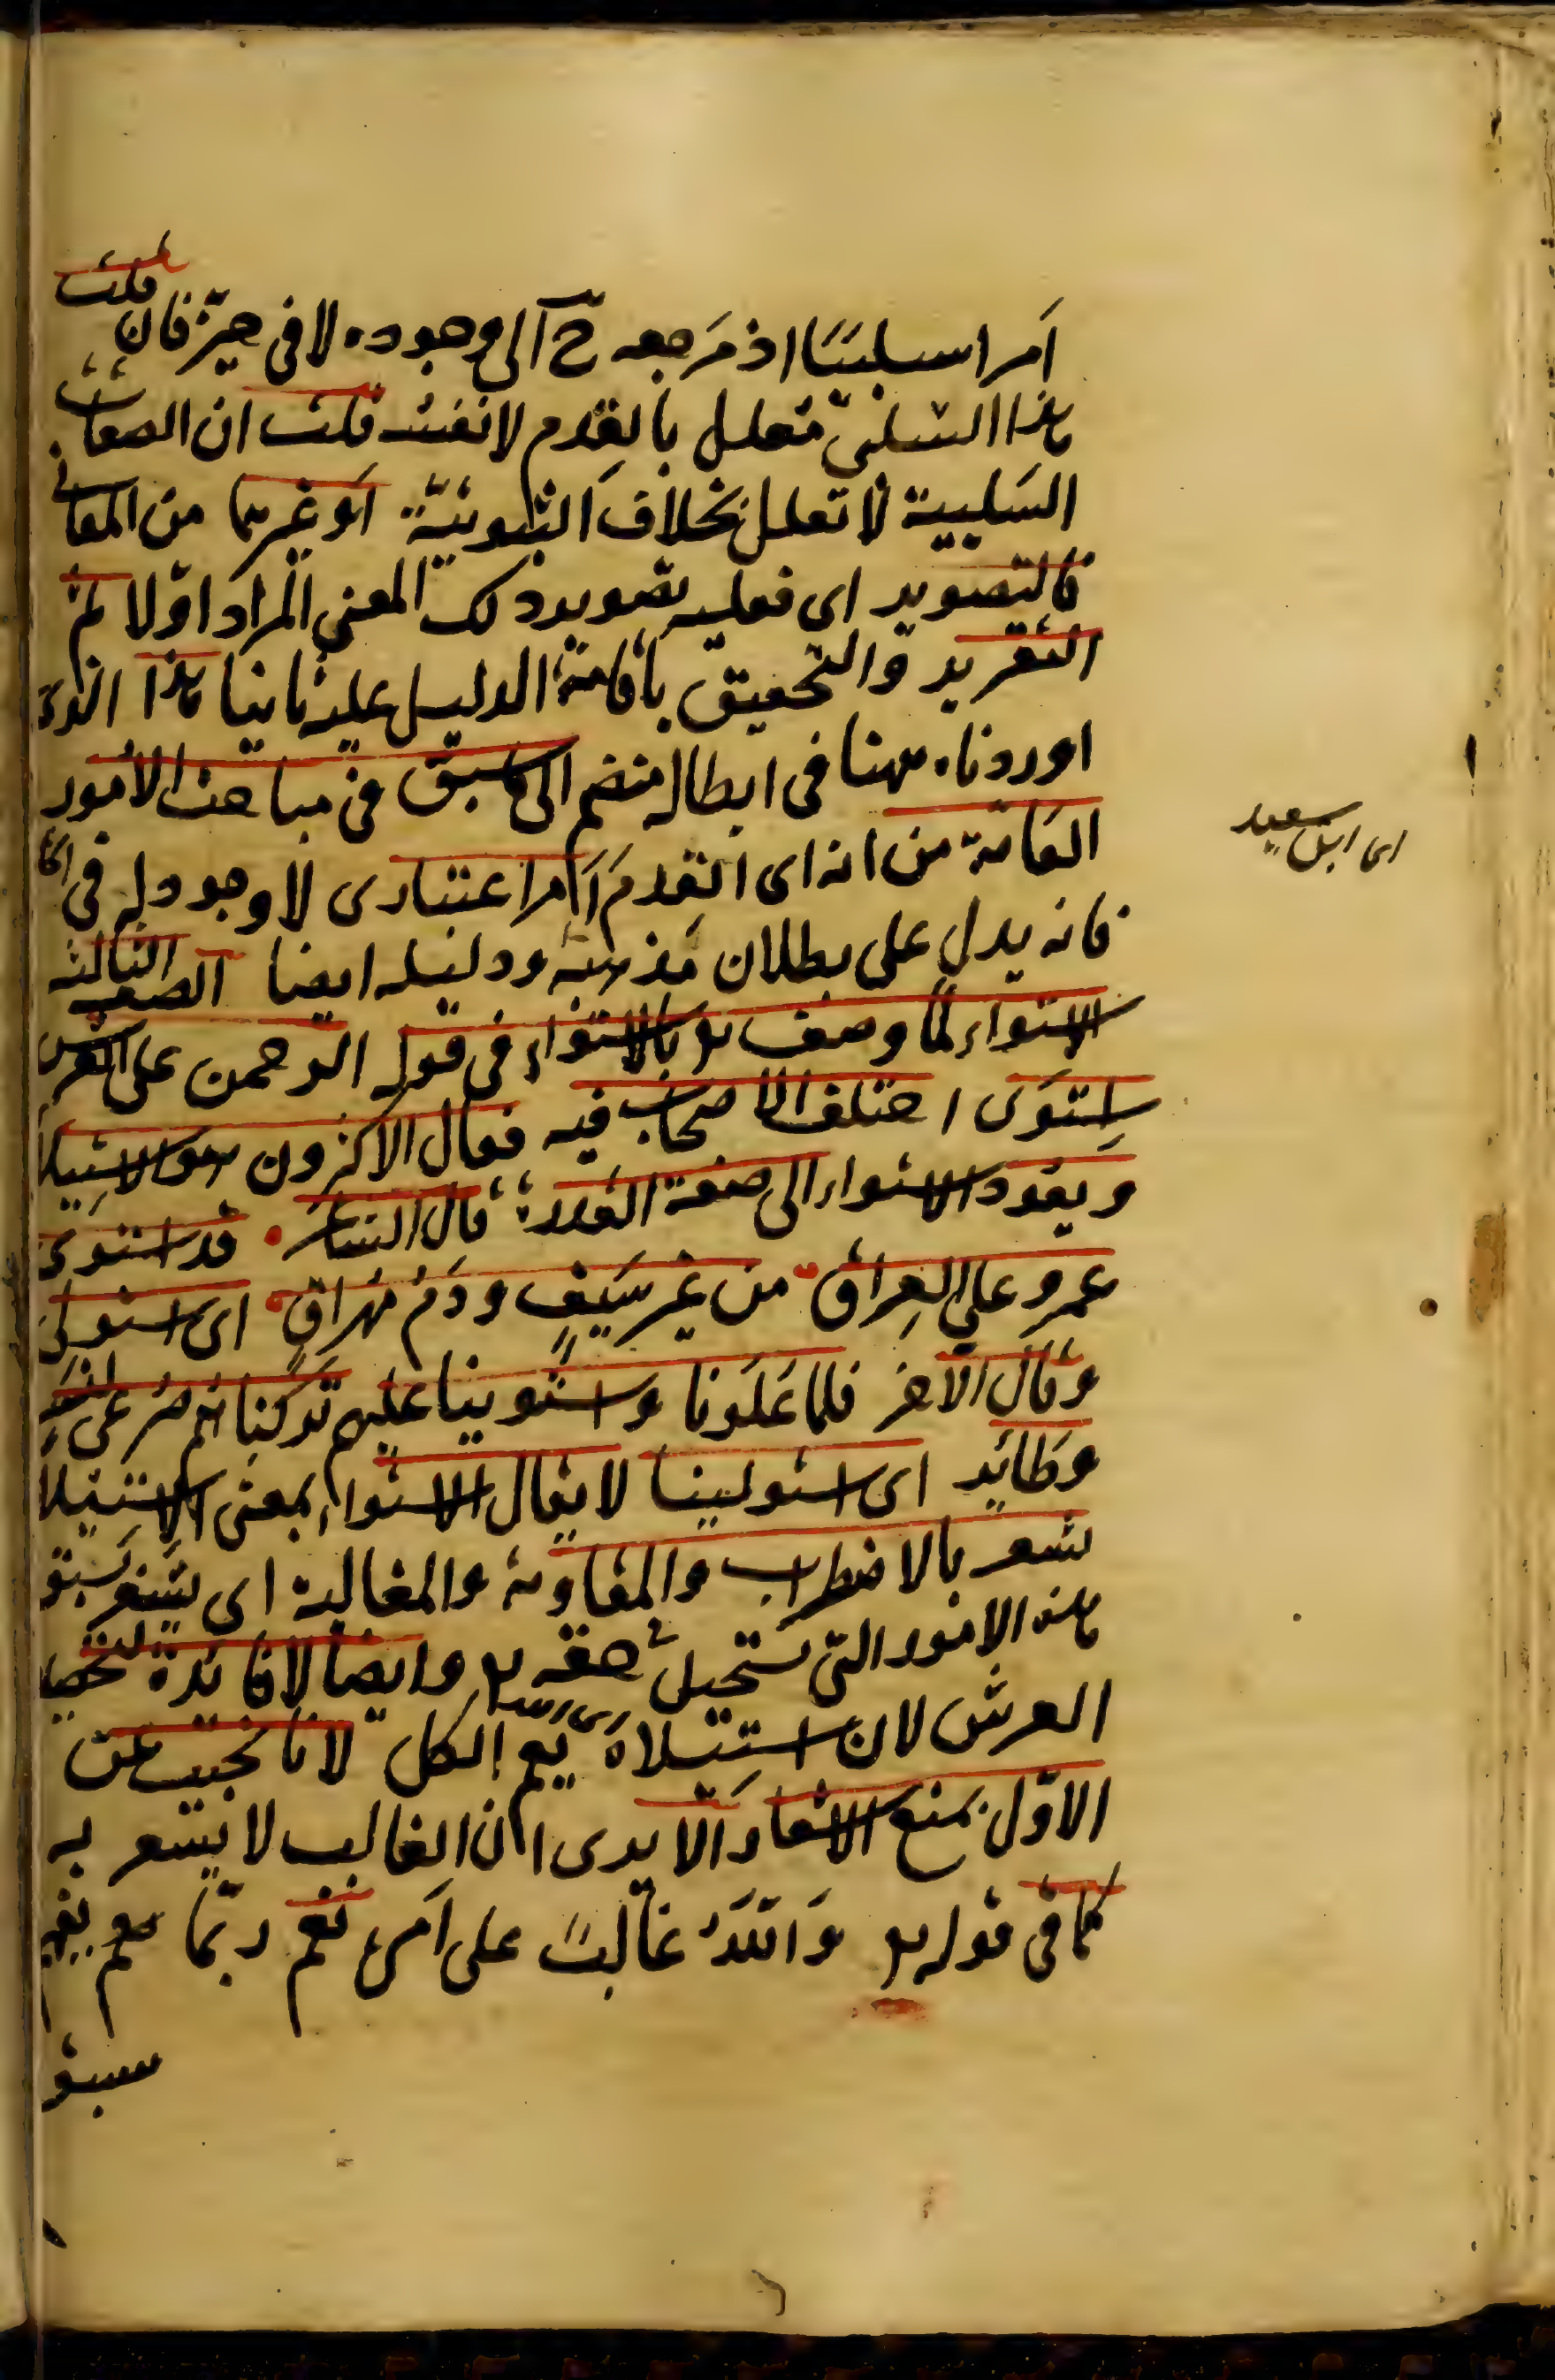 أمرا سلبيّا اذ مرجعه ح الى وجوده لا فى حيّز فان قلت
هذا السلبىّ معلل بالقدم لا نفسه قلت ان الصفات
السلبية لا تعلل بخلاف الثبوتيّة أو غيرهما من المعانى
فالتصوير اى فعليه تصوير ذلك المعنى المراد اوّلا ثم
التقرير والتحقيق باقامة الدليل عليه ثانيا هذا الذى
اوردناه ههنا فى ابطاله منضم الى ما سبق فى مباحث الأمور
العامّة من انه اى القدم امر اعتبارى لا وجود له فى
فانه يدل على بطلان مذهبه ودليله ايضا الصفة الثالثة
الاستواء لما وصف تع بالاستواء فى قوله الرحمن على العرش
استوى اختلف الاصحاب فيه فقال الاكثرون هو الاستيلا
ويعود الاستواء الى صفة القدرة قال الشاعر قد استوى
عمرو على العراق من غير سيف ودم مهراق اى استولى
وقال الآخر فلما علونا واستوينا عليهم تركناهم صرعى لنسر
وطائر اى استولينا لا يقال الاستواء بمعنى الاستيلا
يشعر بالاضطراب والمقاومة والمغالبة اى يشعر بسبق
هذه الامور التى تستحيل فى حقه تع وايضا لا فائدة لتخصيص
العرش لان استيلاءه يعم الكل لانا نجيب عن
الاوّل بمنع الاشعار ألا يرى ان الغالب لا يشعر به
كما فى قوله تع والله غالب على امره نعم ربّما يفهم
سبق
اى ابن سعيد